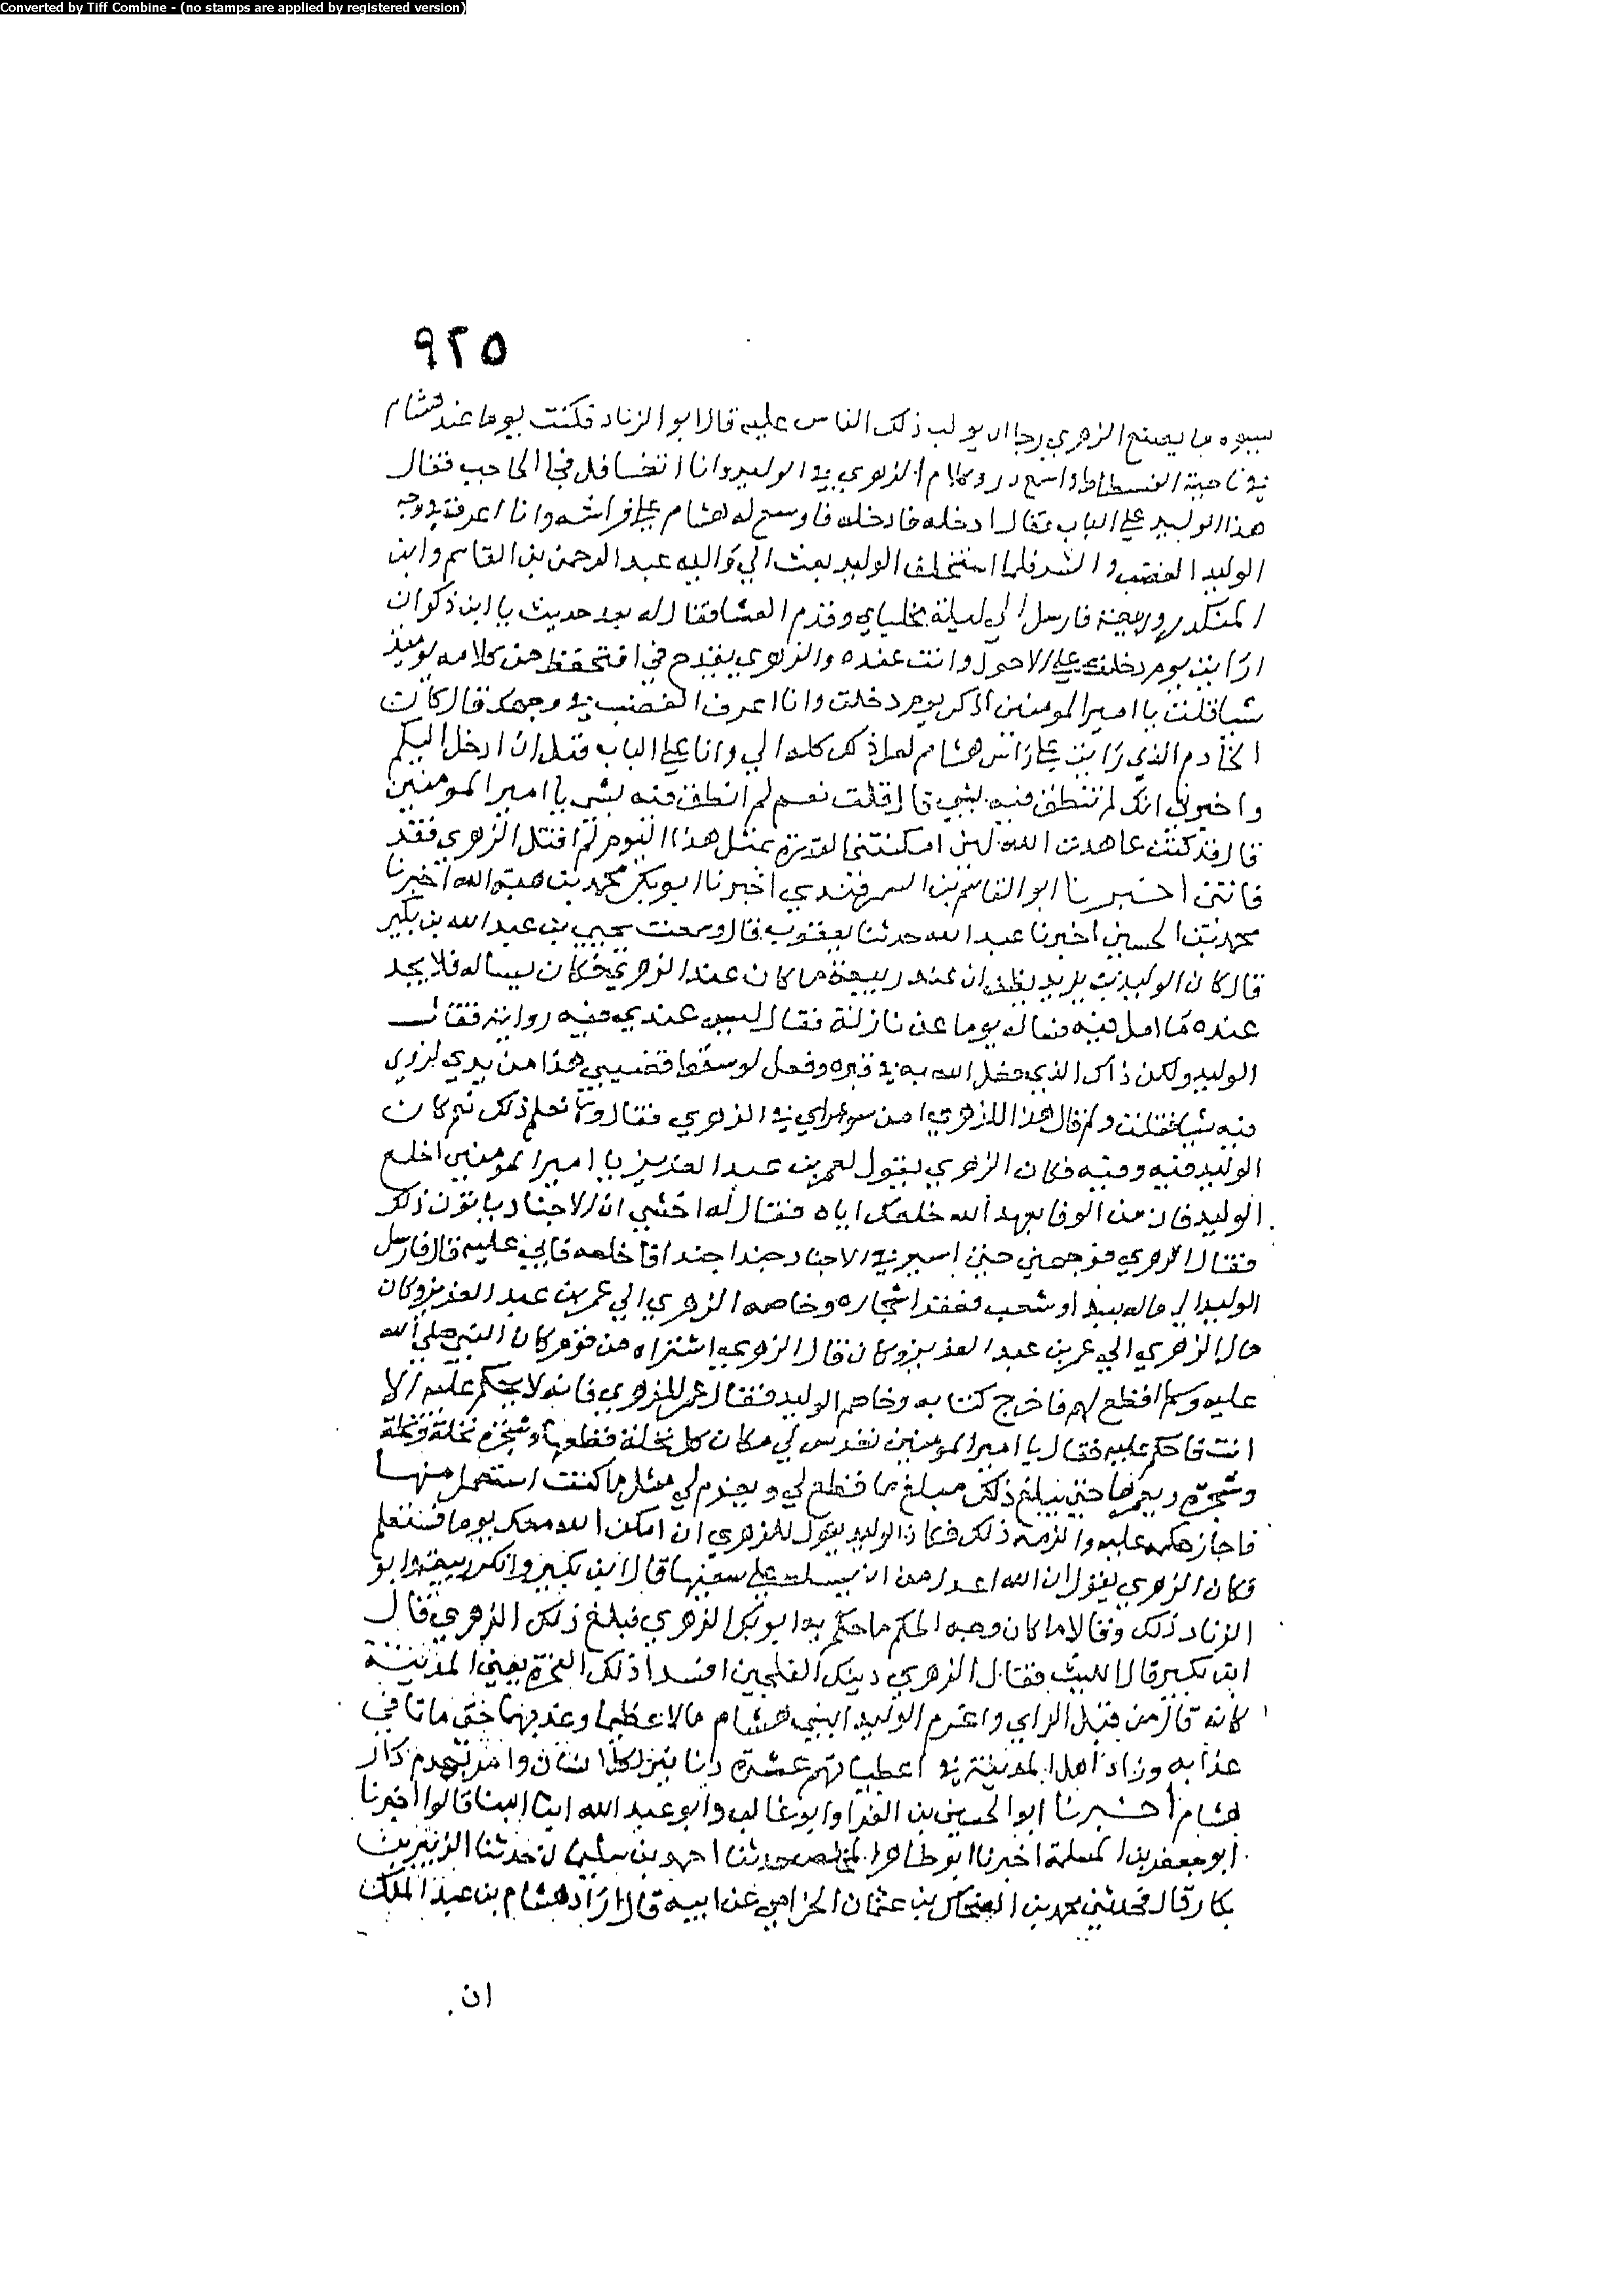 Converted by Tiff Combine - (no stamps are applied by registered version)
٩٢٥
ما يصنع الزهري رجا ان يولب ذلك الناس عليه قال ابو الزناد فكنت يوما عند هشام
في ناحية الفسطاط واسمع ذرو كلام الزهري في الوليد وانا اتغافل فجا الحاجب فقال
هذا الوليد على الباب فقال ادخله فادخله فاوسع له هشام على فراشه وانا اعرف في وجه
الوليد الغضب والشر فلما استخلف الوليد بعث الي والي عبد الرحمن بن القاسم وابن
المنكدر وربيعة فارسل الي ليلة مخليا بي وقدم العشا فقال له بعد حديث يا ابن ذكوان
ارايت يوم دخلت على الاحول وانت عنده والزهري يقدح في افتحفظ من كلامه يوميذ
شيا قلت يا امير المومنين اذكر يوم دخلت وانا اعرف الغضب في وجهك قال كان
الخادم الذي رايت على راس هشام نقل ذلك كله الي وانا على الباب قبل ان ادخل اليكم
واخبرني انك لم تنطق فيه بشي قال قلت نعم لم انطق فيه بشي يا امير المومنين
قال قد كنت عاهدت الله لين امكنتني القدرة بمثل هذا اليوم ان اقتل الزهري فقد
فاتني اخبرنا ابو القاسم بن السمرقندي اخبرنا ابو بكر محمد بن هبة الله اخبرنا
محمد بن الحسين اخبرنا عبد الله حدثنا يعقوب قال وسمعت يحيى بن عبد الله بن بكير
قال كان الوليد بن يزيد يظن ان عند ربيعة ما كان عند الزهري فكان يساله فلا يجد
عنده ما امل فيه فساله يوما عن نازلة فقال ليس عندي فيه رواية فقال
الوليد ولكن ذاك الذي فعل الله به في قبره وفعل لو سقط قضيبي هذا من يدي لروي
فيه شيا فقلت ولم قال هذا للزهري من سو رايي في الزهري فقال وما تعلم ذلك ثم كان
الوليد فيه وفيه فكان الزهري يقول لعمر بن عبد العزيز يا امير المومنين اخلع
الوليد فان من الوفا بعهد الله خلعك اياه فقال له اخشى ان الاجناد يابون ذلك
فقال الزهري فوجهني حتى اسير في الاجناد جندا جندا فاخلعه فابي عليه قال فارسل
الوليد الى ماله ببدا وشغب فعقد اشجاره وخاصمه الزهري الي عمر بن عبد العزيز وكان
مال الزهري الي عمر بن عبد العزيز وكان فقال الزهري اشتراه من قوم كان النبي صلى الله
عليه وسلم اقطع لهم فاخرج كتابه وخاصم الوليد فقال عمر للزهري فانه لا يحكم عليه الا
انت فاحكم عليه فقال يا امير المومنين تغرس لي مكان كل نخلة قطعها وشجرة نخلة ونخلة
وشجرة حتى يبلغ ذلك مبلغ ما قطع لي ويغرم لي مثل ما كنت استغل منها
فاجاز حكمه عليه والزمه ذلك فكان الوليد يقول للزهري ان امكن الله منك يوما فستعلم
فكان الزهري يقول ان الله اعدل من ان يسلط علي سفيها قال ابن بكير وانكر ربيعة وابو
الزناد ذلك وقالا ما كان وجه الحكم ما حكم به ابو بكر الزهري فبلغ ذلك الزهري قال
ابن بكير قال الليث فقال الزهري ذينك العلجين افسدا ذلك القرية يعني المدينة
كانه قال من قبل الراي واغرم الوليد ابني هشام مالا عظيما وعذبهما حتى ماتا في
عذابه وزاد اهل المدينة في اعطياتهم عشرة دنانير لكل انسان وامر بهدم دار
هشام اخبرنا ابو الحسين بن الفرا وابو غالب وابو عبد الله ابنا البنا قالوا اخبرنا
ابو جعفر بن المسلمة اخبرنا ابو طاهر المخلص حدثنا احمد بن سليمان حدثنا الزبير بن
بكار قال فحدثني محمد بن الضحاك بن عثمان الحزامي عن ابيه قال اراد هشام بن عبد الملك
ان